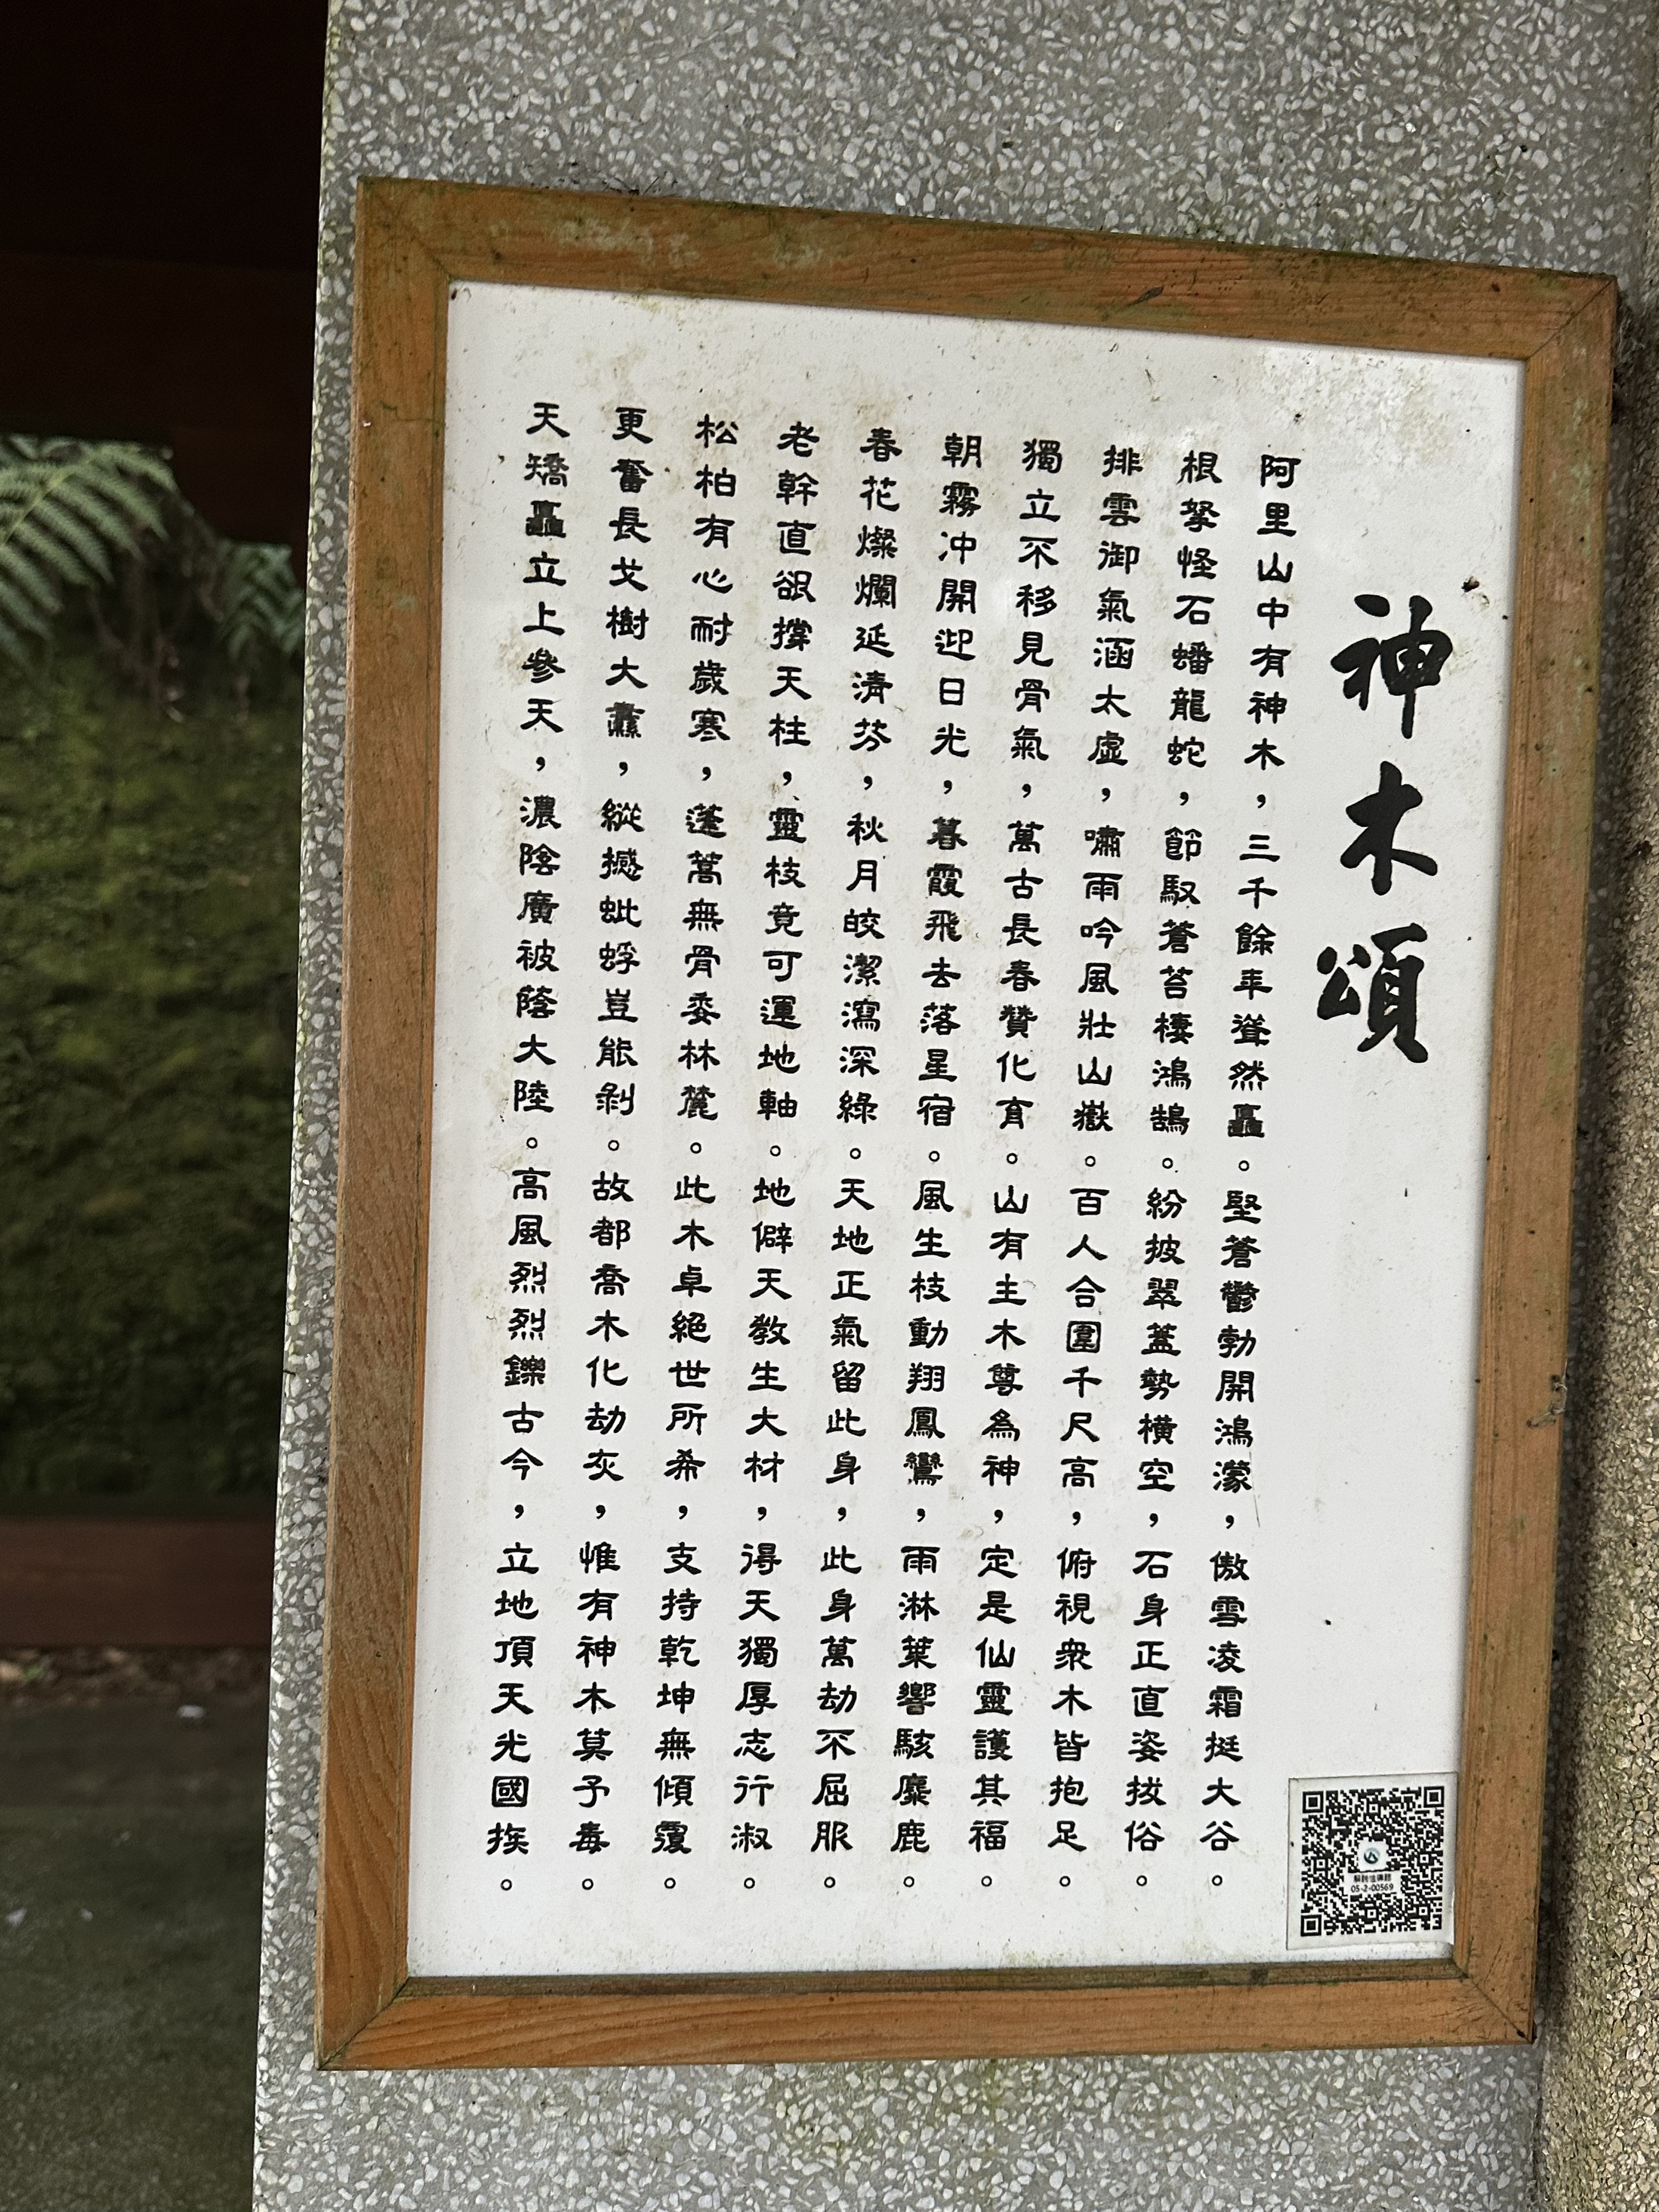 神木頌
阿里山中有神木，三千餘年聳然矗。堅蒼鬱勃開鴻濛，傲雪凌霜挺大谷。
根拏怪石蟠龍蛇，節馭蒼苔棲鴻鵠。紛披翠蓋勢橫空，石身正直姿拔俗。
排雲御氣涵太虛，嘯雨吟風壯山嶽。百人合圍千尺高，俯視衆木皆抱足。
獨立不移見骨氣，萬古長春贊化育。山有主木尊為神，定是仙靈護其福。
朝霧冲開迎日光，暮霞飛去落星宿。風生枝動翔鳳鸞，雨淋葉響駭麋鹿。
春花燦爛延清芬，秋月皎潔瀉深綠。天地正氣留此身，此身萬劫不屈服。
老幹直欲撐天柱，靈枝竟可運地軸。地僻天教生大材，得天獨厚志行淑。
松柏有心耐歲寒，蓬蒿無骨委林麓。此木卓絕世所希，支持乾坤無傾覆。
更奮長戈樹大纛，縱撼蚍蜉豈能剝。故都喬木化劫灰，惟有神木莫予毒。
天矯矗立上參天，濃陰廣被蔭大陸。高風烈烈鑠古今，立地頂天光國族。
05-2-00569